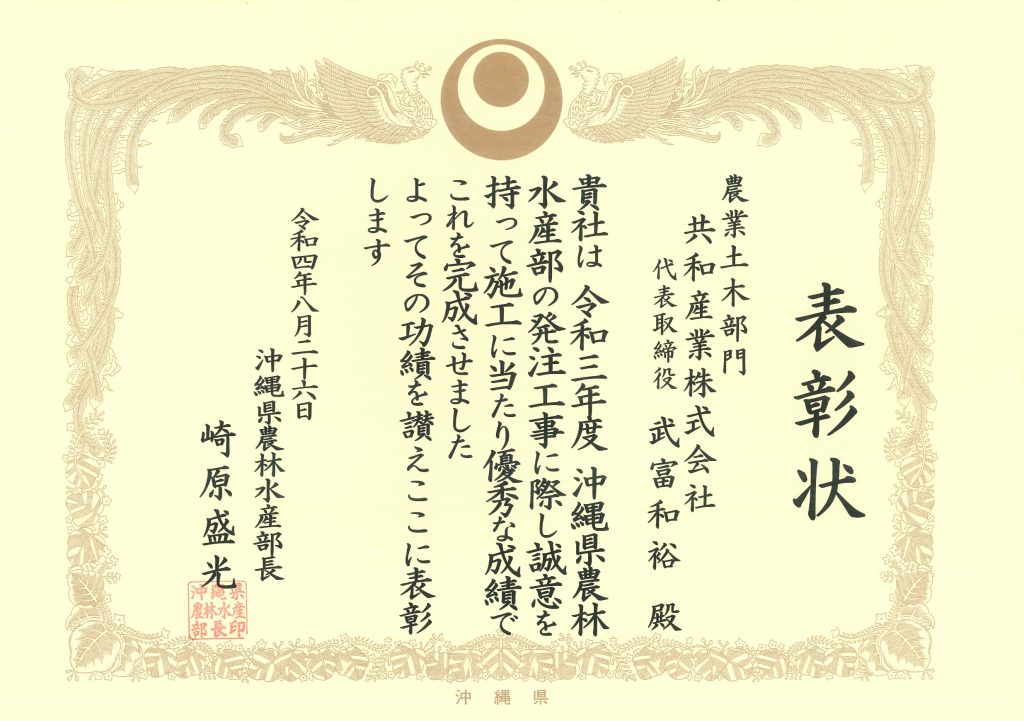 表彰状
農業土木部門
共和産業株式会社
代表取締役 武富和裕 殿
貴社は 令和三年度 沖縄県農林
水産部の発注工事に際し誠意を
持って施工に当たり優秀な成績で
これを完成させました
よってその功績を讃えここに表彰
します
令和四年八月二十六日
沖縄県農林水産部長
崎原盛光
沖縄県
農林水産
部長印
沖縄県